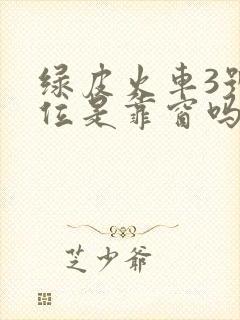 绿皮火车3号
位是靠窗吗
芝少爷